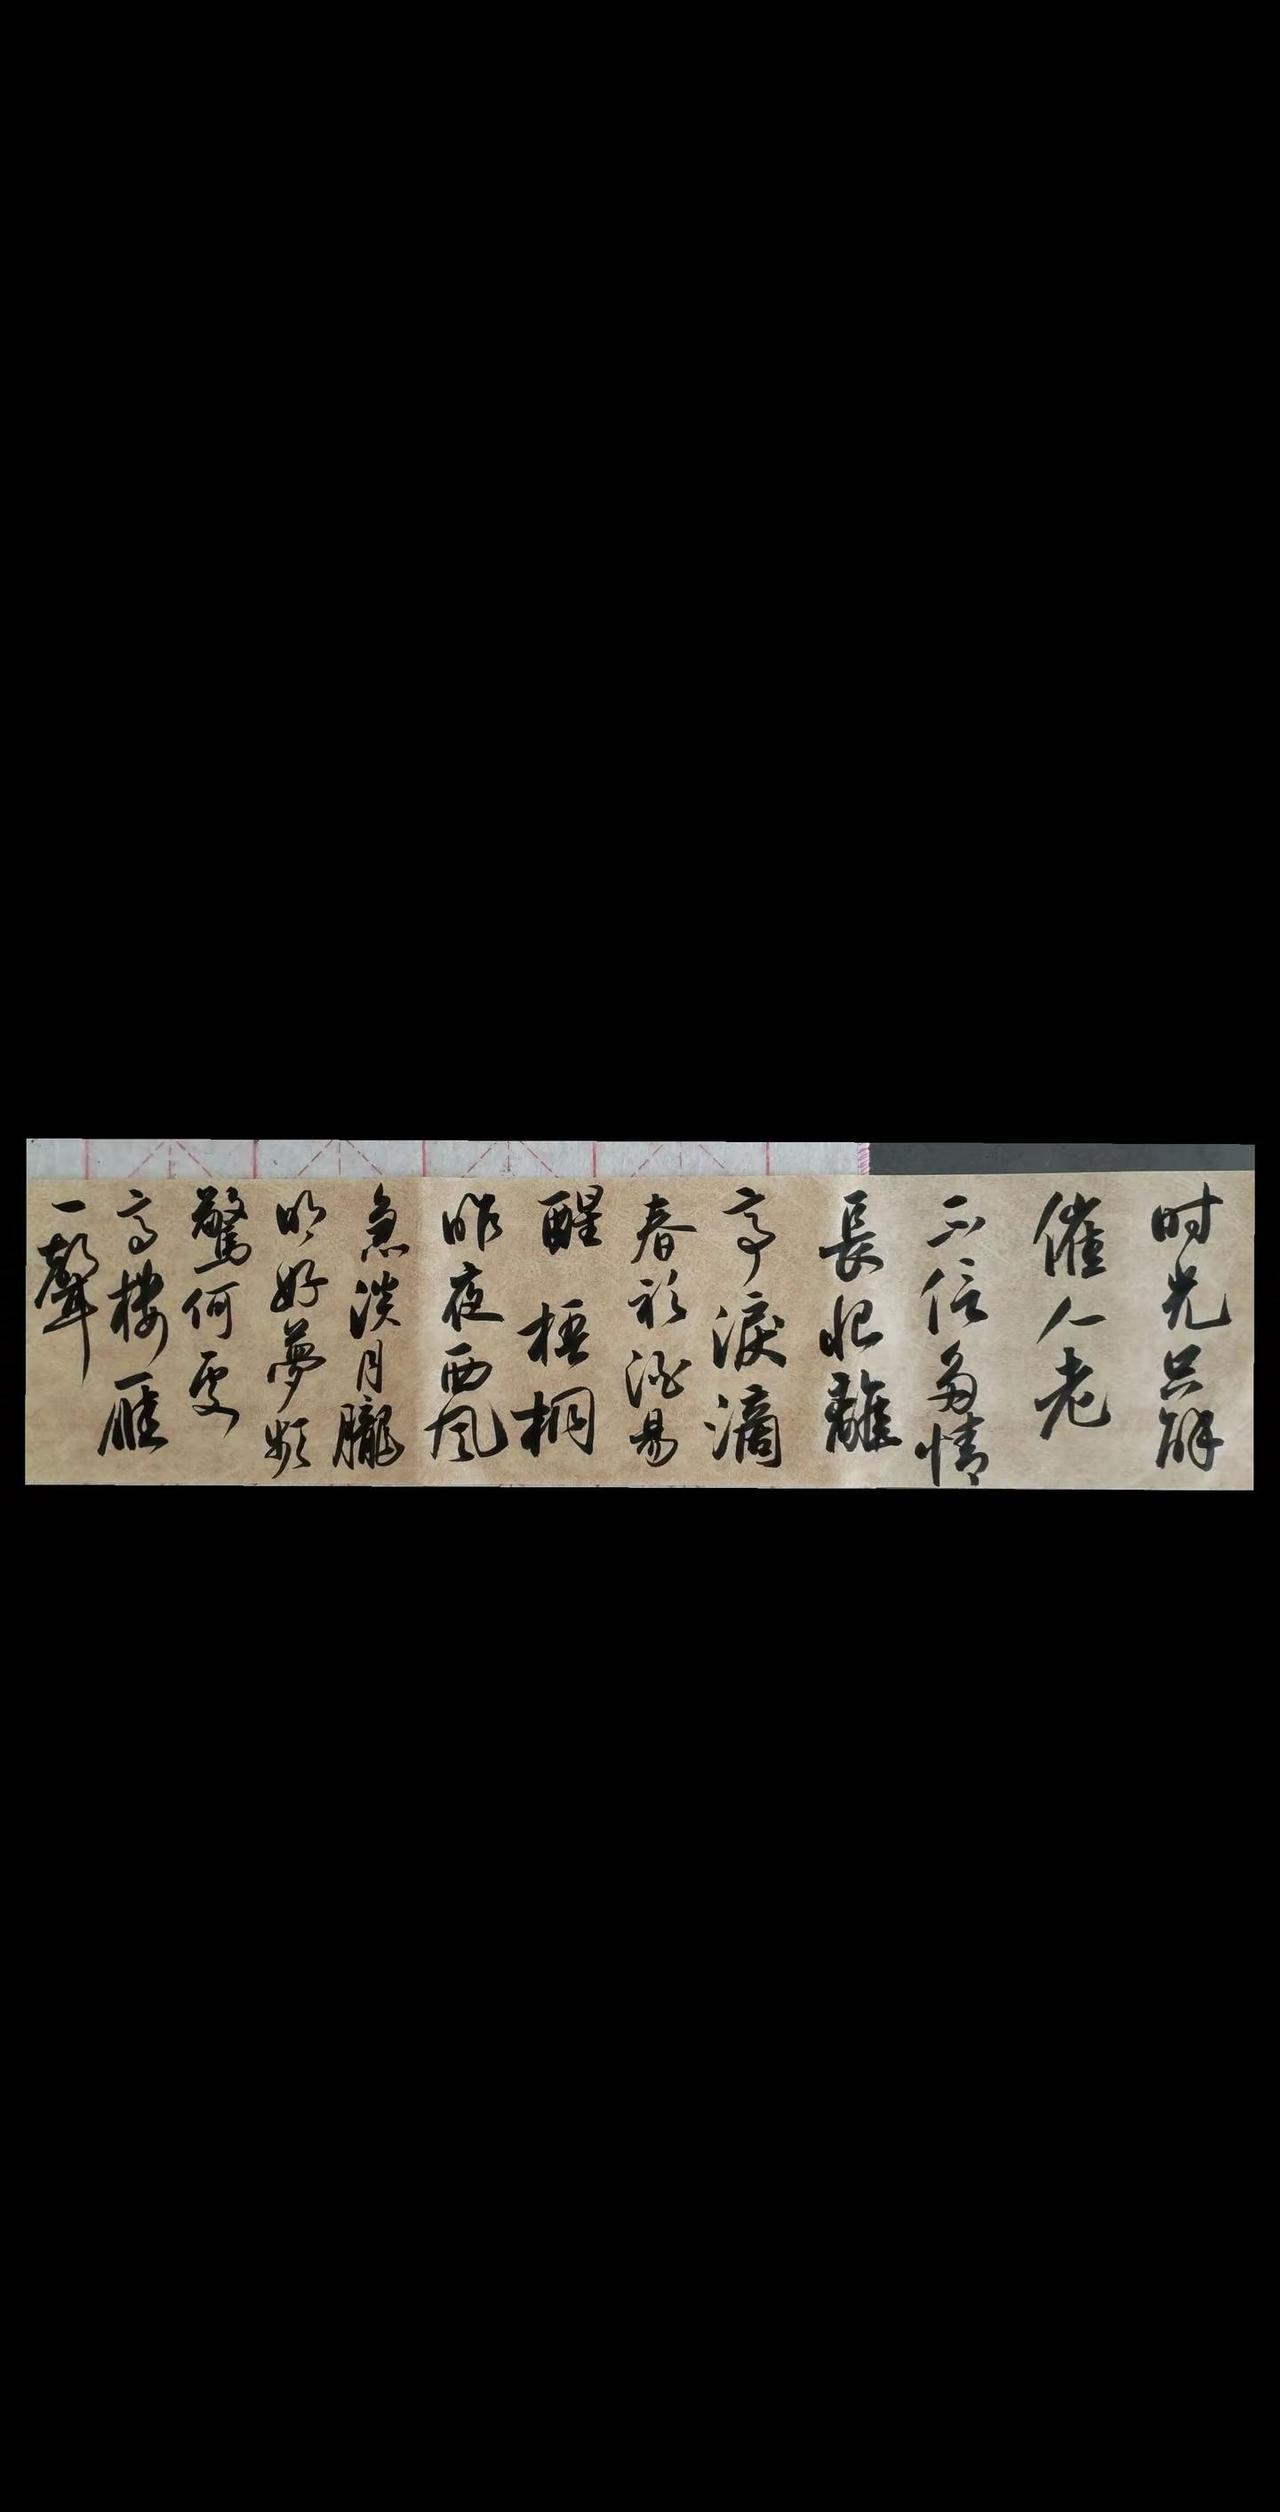 时光只解
催人老
不信多情
長恨離
亭淚滴
春衫酒易
醒梧桐
昨夜西风
急淡月朧
明好夢頻
驚何處
高樓雁
一聲